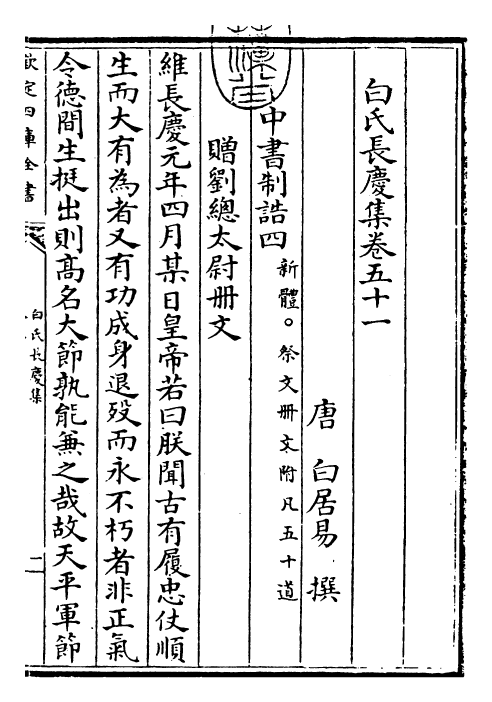 白氏長慶集卷五十一
唐 白居易 撰
中書制誥四 新體。祭文冊文附凡五十道
贈劉總太尉冊文
維長慶元年四月某日皇帝若曰朕聞古有履忠仗順
生而大有為者又有功成身退殁而永不朽者非正氣
令德間生挺出則髙名大節孰能兼之哉故天平軍節
欽定四庫全書
白氏長慶集